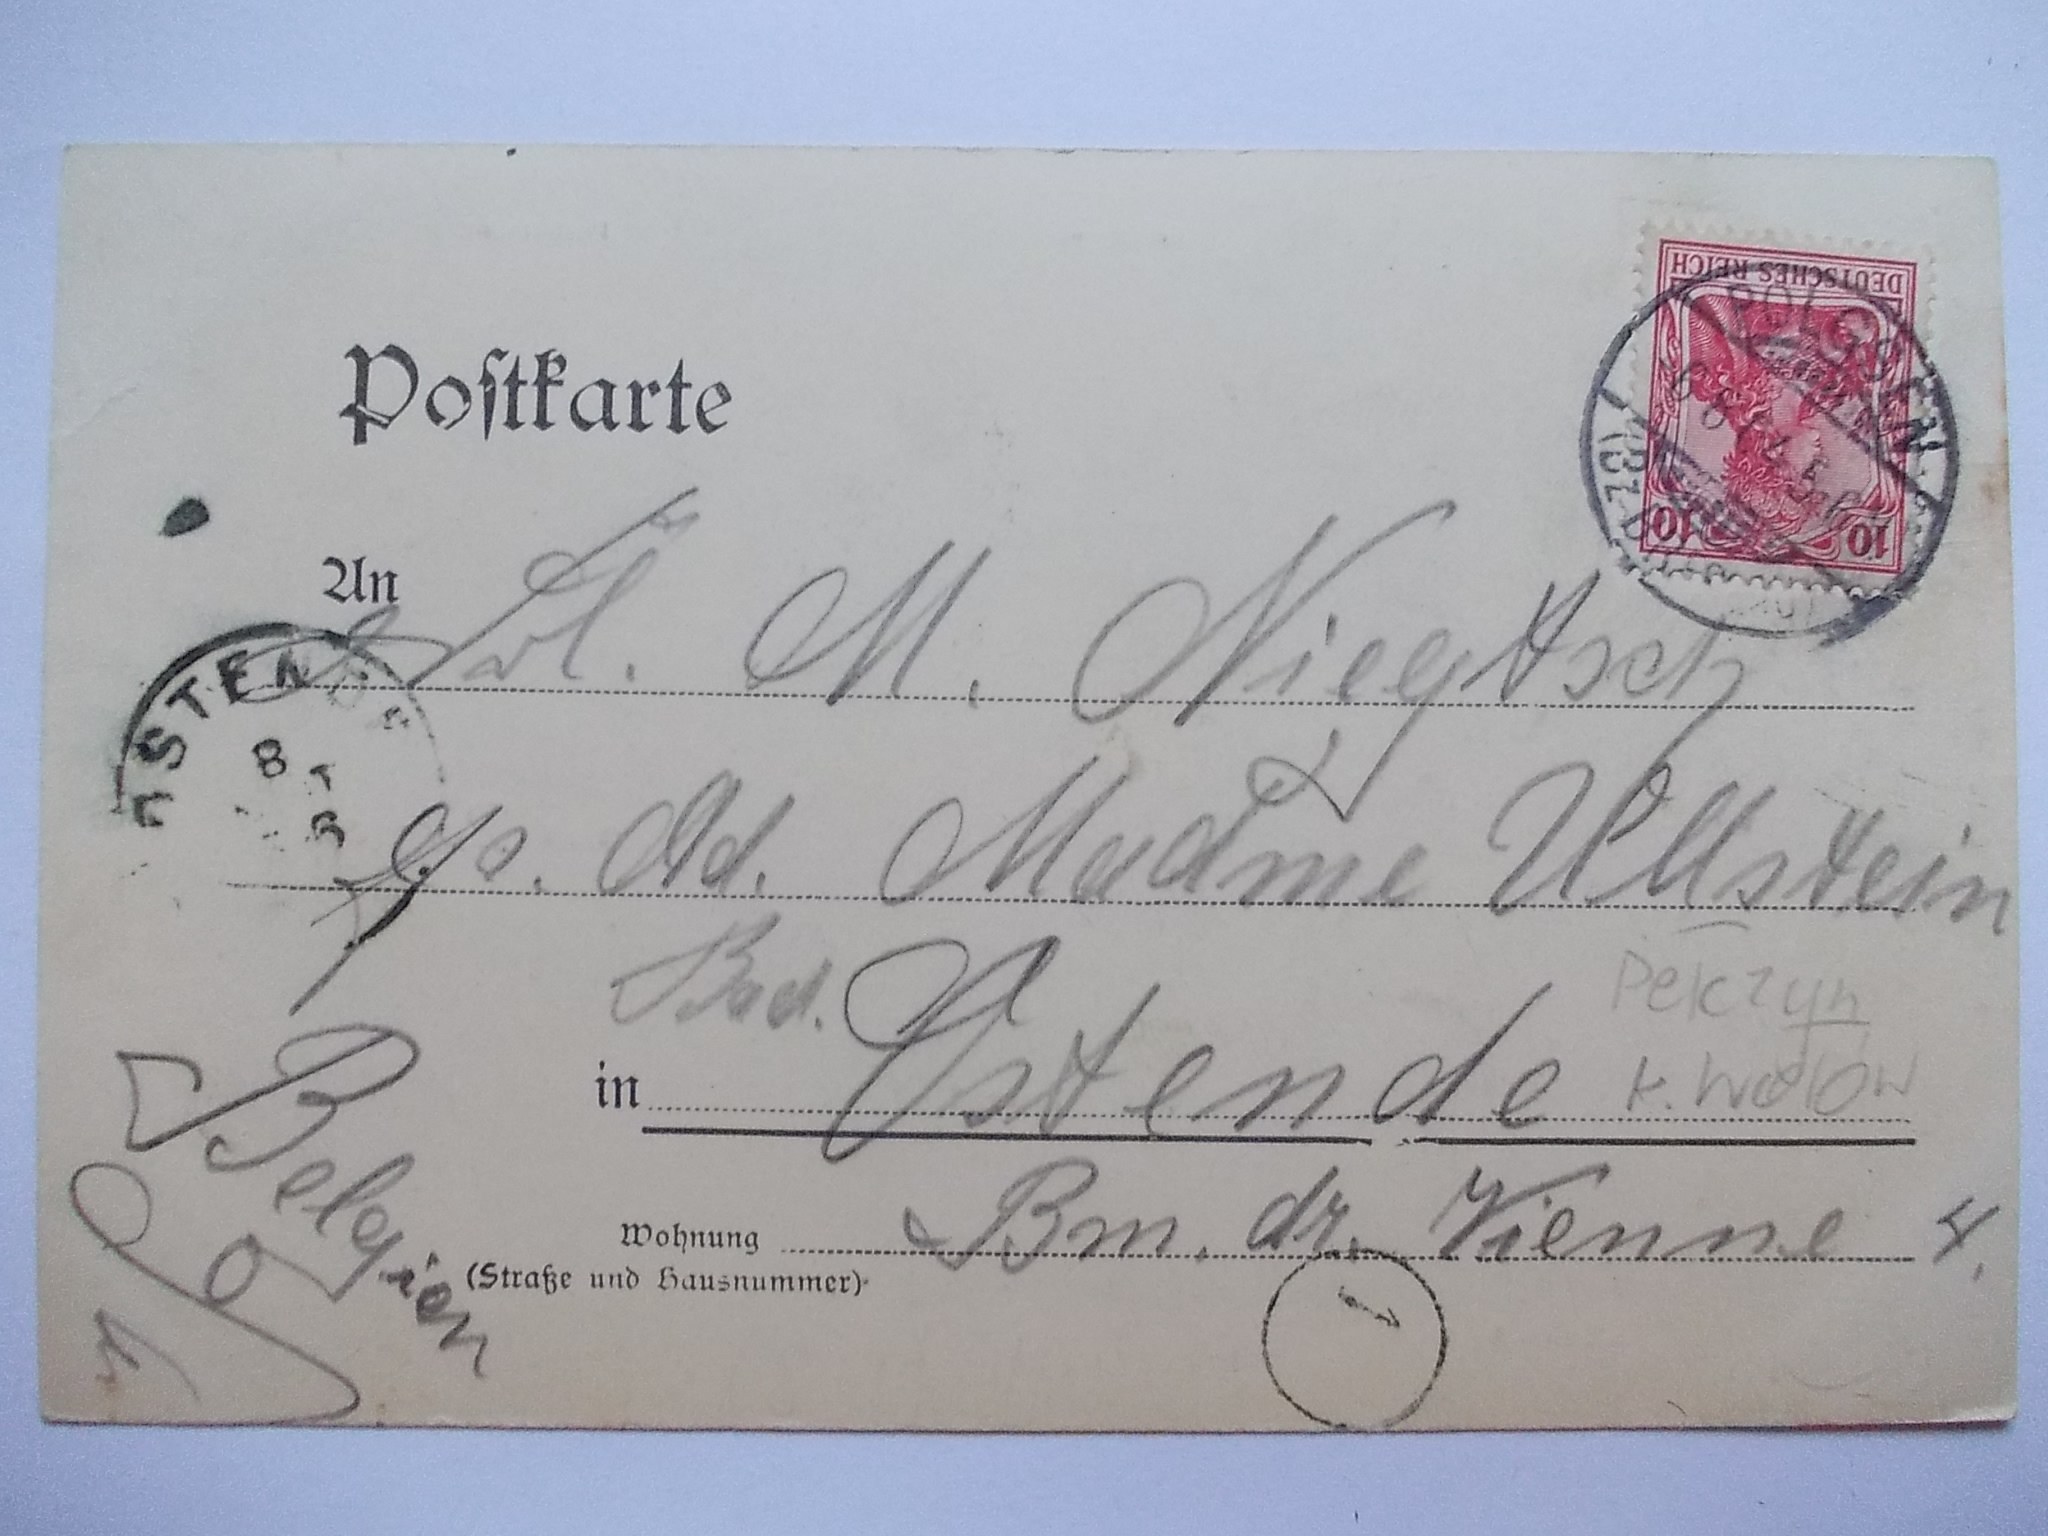 DEUTSCHES REICH
10 10
POLGSEN
Postkarte
An Frl. M. Niegtsch
Ps. Ad. Madame Ullstein
Bad.
in Ostende
Pełczyn
k. Wołów
Belgien
Wohnung Bm. dr. Vienne 4.
(Straße und Hausnummer)
OSTENDE
8
1